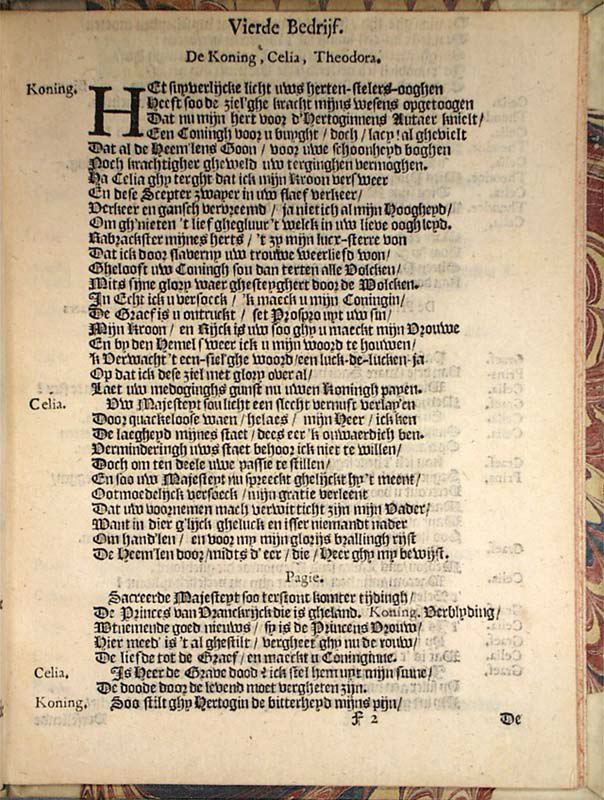 Vierde Bedrijf.
De Koning, Celia, Theodora.
Koning. HEt supverlijcke licht uws herten-stelers-ooghen
Heeft soo de ziel'ghe kracht mijns wesens opgetoogen
Dat nu mijn hert voor d'Hertoginnens Autaer knielt/
Een Coningh voor u buyght / doch / lacy! al ghevielt
Dat al de Heem'lens Goon / voor uwe schoonheyd boghen
Noch krachtigher gheweld uw terginghen vermoghen.
Ha Celia ghy terght dat ick mijn Kroon versweer
En dese Scepter zwayer in uw slaef verkeer/
Verkeer en gansch vervreemd / ja niet ich al mijn Hoogheyd/
Om gh'nieten 't lief ghegluur 't welck in uw lieve oogh leyd.
Kabrackster mijnes herts / 't zy mijn lucx-sterre von
Dat ick door slaverny uw trouwe weerliefd won/
Ghelooft uw Coningh sou dan terten alle Volcken/
Mits sijne glory waer ghesteyghert door de Wolcken.
In Echt ick u versoeck / 'k maeck u mijn Coningin/
De Graef is u ontruckt / set Prospro uyt uw sin/
Mijn Kroon / en Rijck is uw soo ghy u maeckt mijn Vrouwe
En by den Hemel sweer ick u mijn woord te houwen/
'k Verwacht 't een-siel'ghe woord / een luck-de-lucken-ja
Op dat ick dese ziel met glory over al/
Laet uw medoginghs gunst nu uwen Koningh payen.
Celia. Uw Majesteyt sou licht een slecht vernuft verlay'en
Door quackeloose waen / helaes / mijn Heer / ick ken
De laegheyd mijnes staet / dees eer 'k onwaerdich ben.
Verminderingh uws staet behoor ick niet te willen/
Doch om ten deele uwe passie te stillen/
En soo uw Majesteyt nu spreeckt ghelijckt hy't meent/
Ootmoedelijck versoeck / mijn gratie verleent
Dat uw voornemen mach verwitticht zijn mijn Vader/
Want in dier g'lijck gheluck en isser niemandt nader
Om hand'len / en voor my mijn glorijs brallingh rijst
De Heem'len door / midts d'eer / die / Heer ghy my bewijst.
Pagie.
Sacreerde Majesteyt soo terstont komter tijdingh/
De Princes van Vranckrijck die is gheland. Koning. Verblyding/
Uytnemende goed nieuws / sy is de Princens Vrouw/
Hier meed' is 't al ghestilt / vergheer ghy nu de rouw/
De liefde tot de Graef / en maeckt u Coninginne.
Celia. Is Heer de Grave dood? ick stel hem uyt mijn sinne/
De doode door de levend moet vergheten zijn.
Koning. Soo stilt ghy Hertogin de bitterheyd mijns pijn/
F 2
De